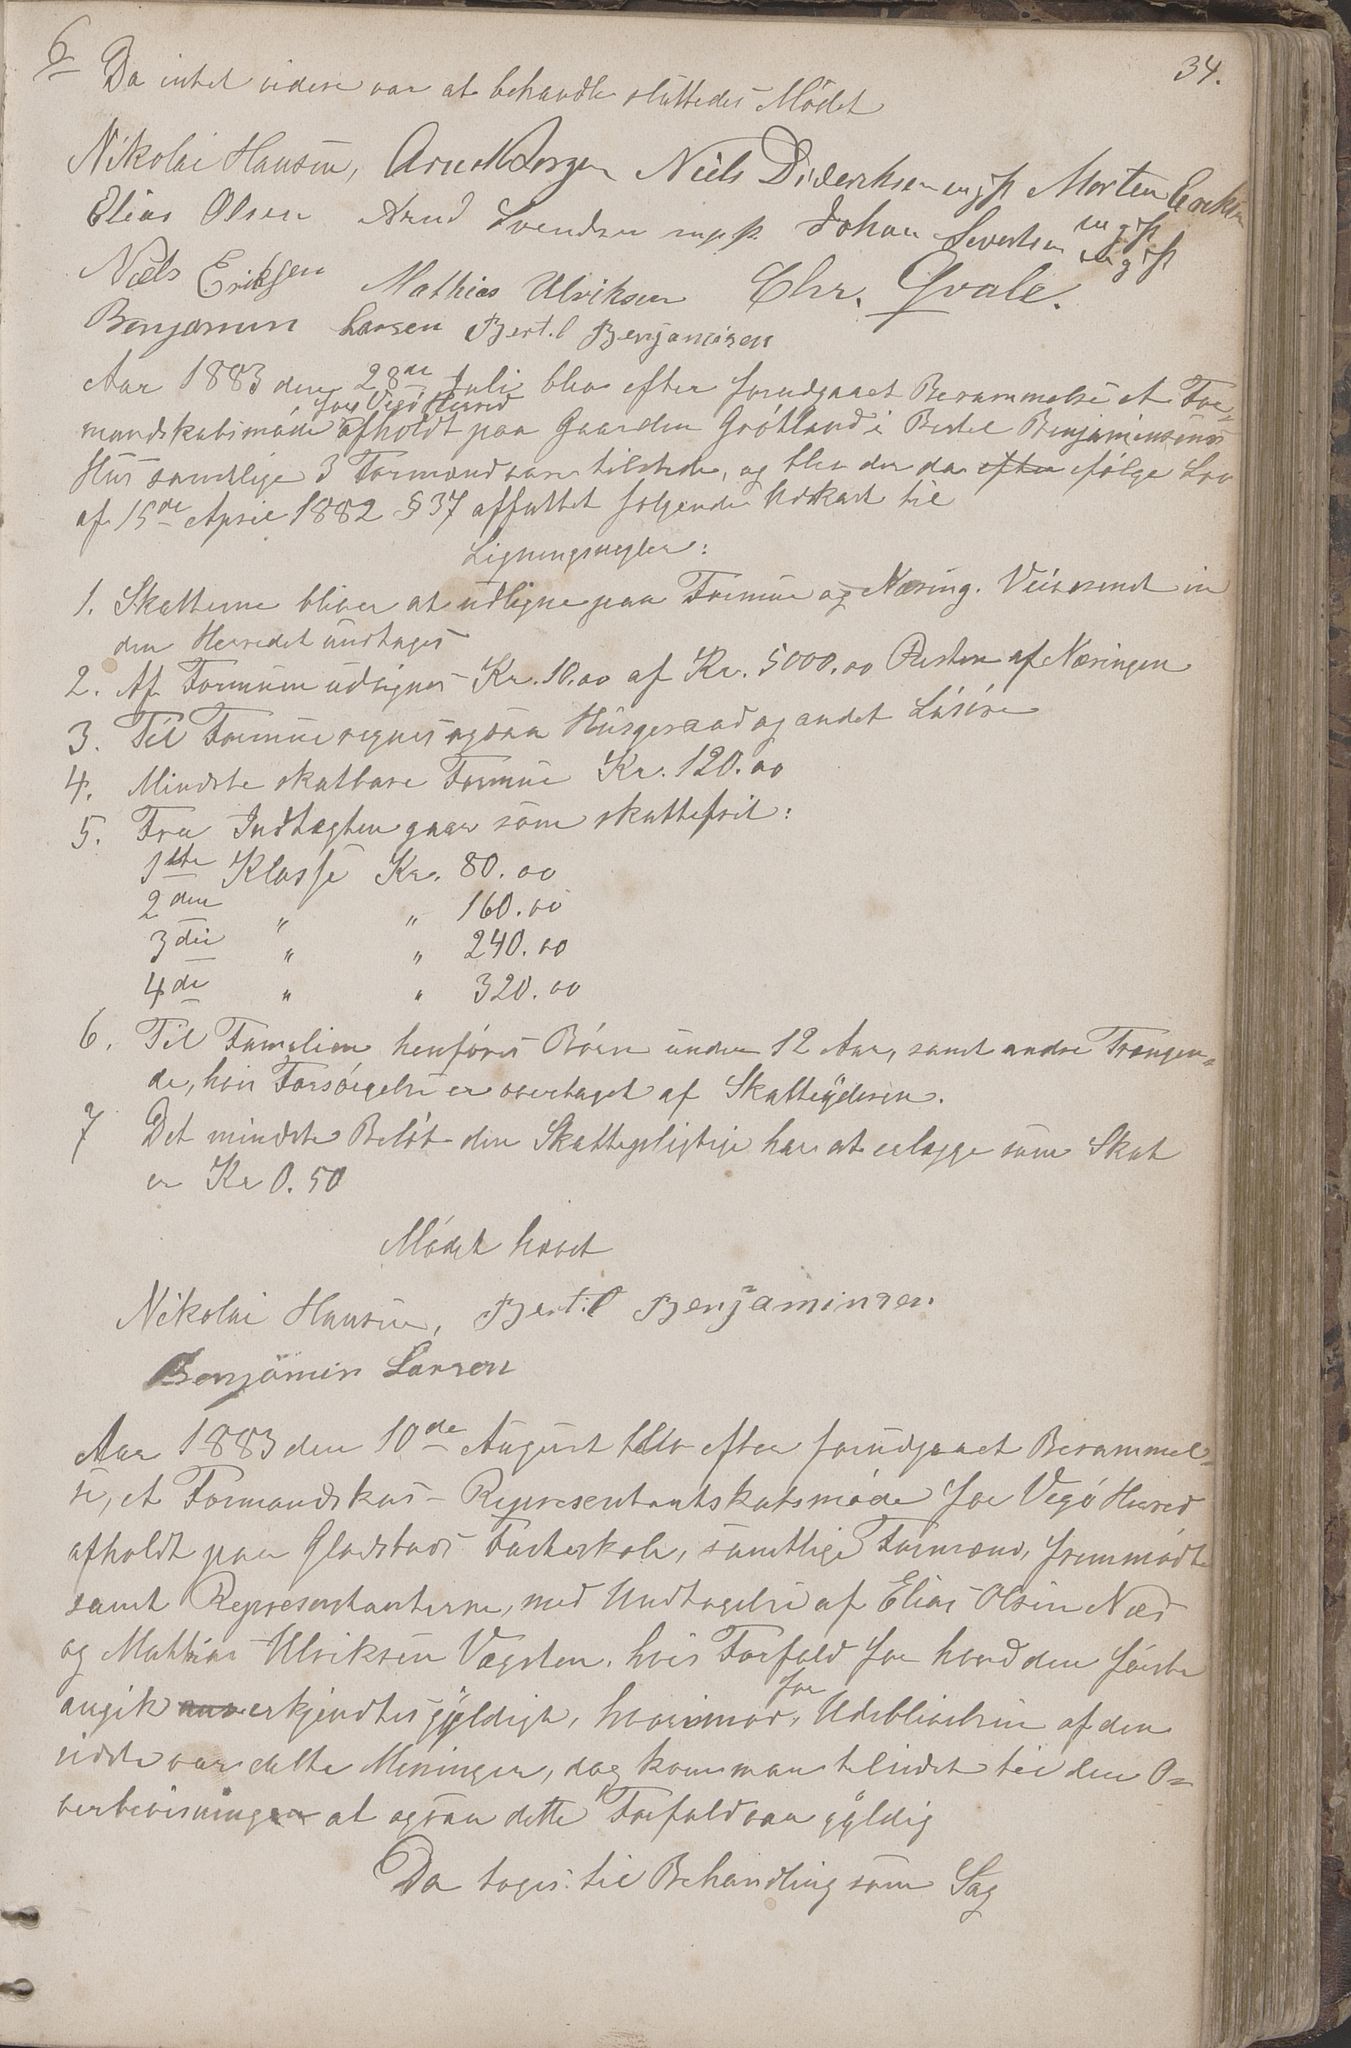 34.
6 Da intet videre var at behandle sluttedes Mødet
Nikolai Hansen, Niels Dideriksen mgp Morten Eriksen mgp
Elias Olsen Arnd Svendsen mpp. Johan Sivertsen mgp
Niels Eriksen Mathias Ulriksen Chr. Qvale.
Benjamin Larsen Bertil Benjaminsen
Aar 1883 den 28de Juli blev efter forudgaaet Berammelse et For-
mandskabsmøde for Vegø Herred afholdt paa Gaarden Grøtland i Bertel Benjaminsens
Hus samtlige 3 Formænd vare tilstede, og blev der da efter følge Lov
af 15de April 1882 § 37 affattet følgende Udkast til
Ligningsregler:
1. Skatterne bliver at udligne paa Formue og Næring. Veivæsenet in
den Herredet undtages
2. Af Formuen udlignes Kr. 10.00 af Kr. 5000.00 Resten af Næringen
3. Til Formue regnes ogsaa Husgeraad og andet Løsøre
4. Mindste skatbare Formue Kr. 120.00
5. Fra Indtægten gaar som skattefrit:
1ste Klasse Kr. 80.00
2den " " 160.00
3die " " 240.00
4de " " 320.00
6. Til Familien henføres Børn under 12 Aar, samt andre Trængen-
de, hvis Forsørgelse er overtaget af Skatteyderen.
7 Det mindste Beløb den Skattepligtige har at erlægge som Skat
er Kr 0.50
Mødet hævet
Nikolai Hansen, Bertil Benjaminsen
Benjamin Larsen
Aar 1883 den 10de August blev efter forudgaaet Berammel-
se, et Formandskas- Representantskabsmøde for Vegø Herred
afholdt paa Gladstad Fasteskole, samtlige Formænd, fremmødte
samt Representanterne, med Undtagelse af Elias Olsen Næs
og Mathias Ulriksen Vægsten. hvis Forfald for hvad den første
angik erkjendtes gyldigt, hvorimod, for Udeblivelsen af den
sidste var delte Meninger, dog kom man tilsidst til den O-
verbevisningen at ogsaa dette Forfald var gyldig
Da toges til Behandling som Sag